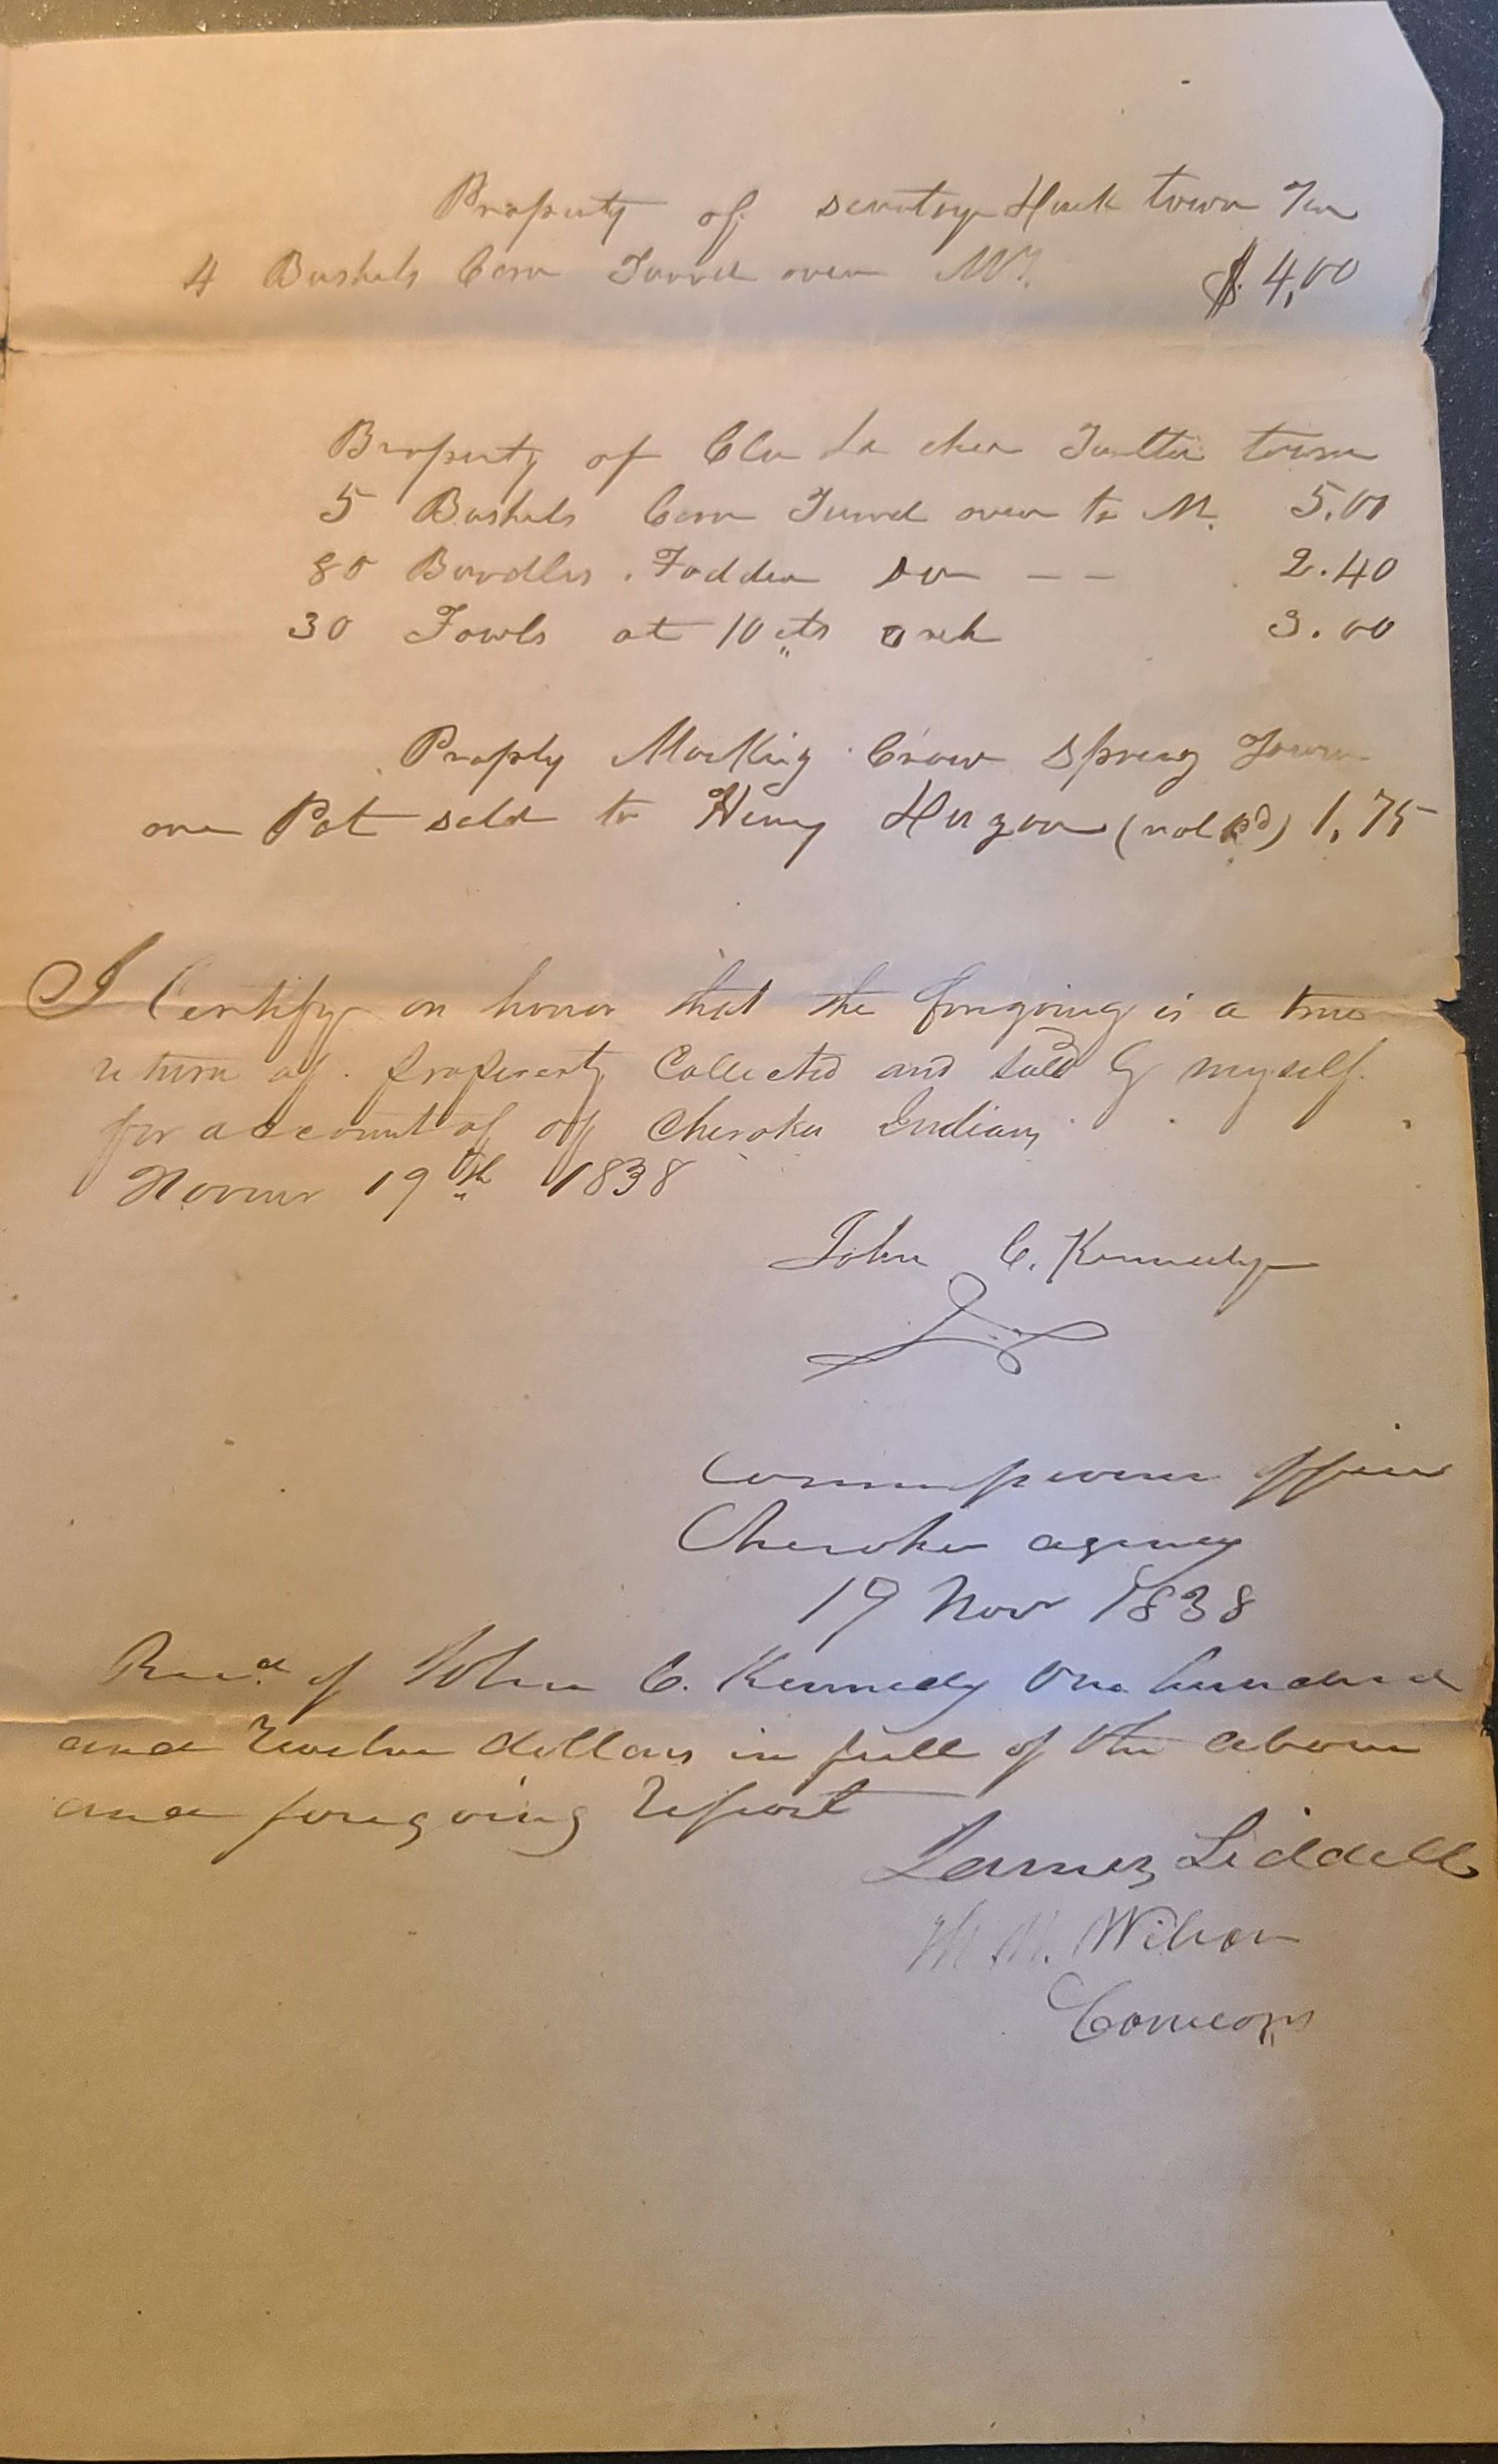 Property of Town Ten
4 Bushels Corn Turned over $ 4,00
Property of Clu la Turttle town
5 Bushels Corn Turned over to M. 5.00
80 Bundles Fodder Do — — 2.40
30 Fowls at 10 cts each 3.00
Proply Mocking Crow Spring Town
one Pot sold to Henry (not pd) 1,75
I Certify on honor that the foregoing is a true
return of property Collected and Sold by myself
for account of of Cherokee Indians
19th 1838
John C. Kennedy
Office
Cherokee agency
19 Nov 1838
Recd. of John C. Kennedy One hundred
and Twelve dollars in full of the above
and foregoing report
James Liddell
Wilson